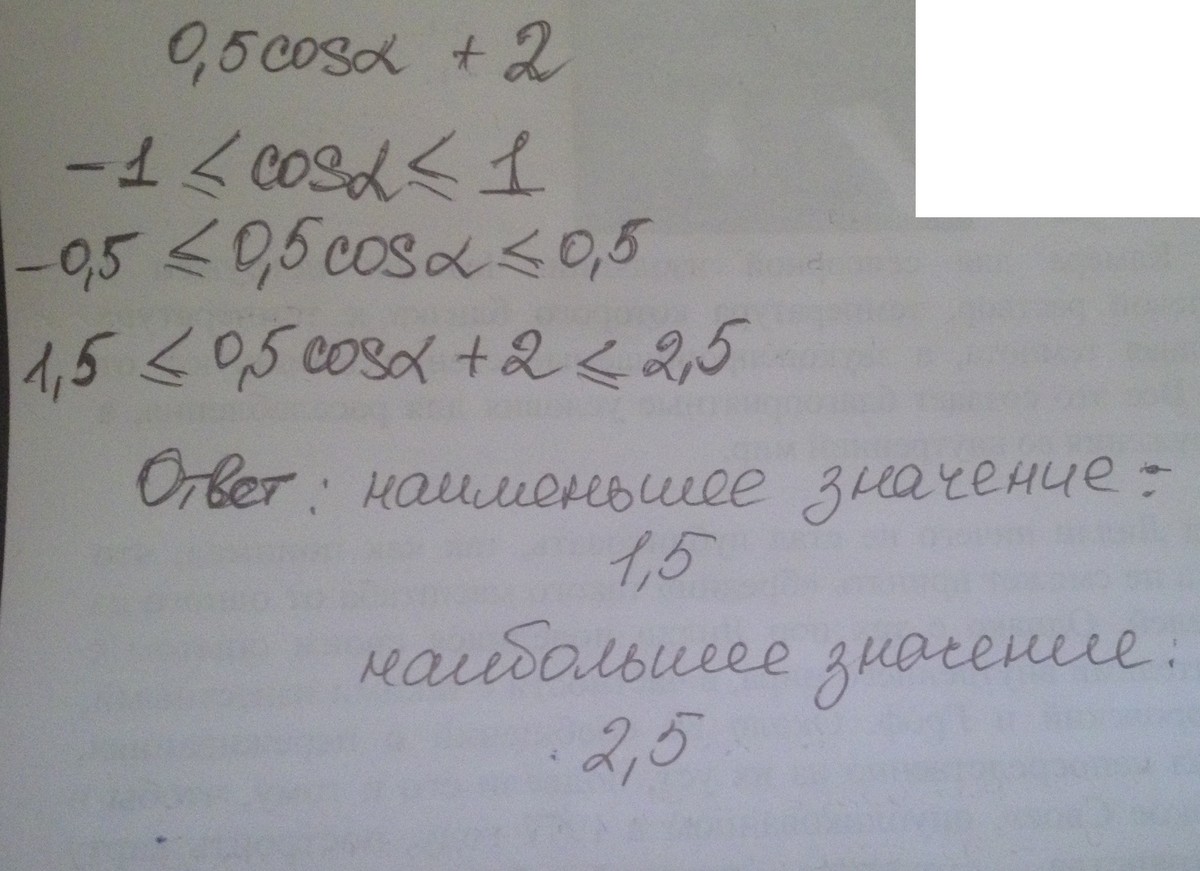 0,5cosα + 2
-1 ≤ cosα ≤ 1
-0,5 ≤ 0,5cosα ≤ 0,5
1,5 ≤ 0,5cosα + 2 ≤ 2,5
Ответ: наименьшее значение:
1,5
наибольшее значение:
2,5